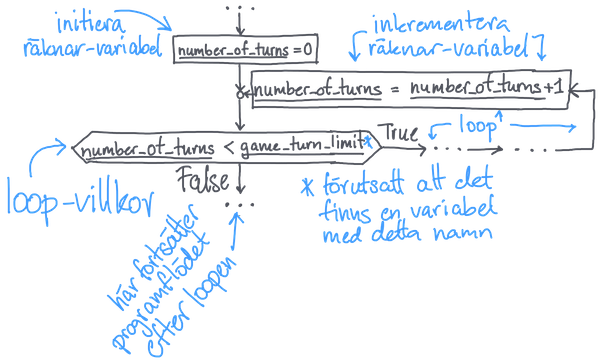 ...
initiera
räknar-variabel
number_of_turns=0
inkrementera
räknar-variabel
number_of_turns = number_of_turns+1
number_of_turns < game_turn_limit*
True
... ...
loop
False
...
loop-villkor
* förutsatt att det
finns en variabel
med detta namn
här fortsätter
programflödet
efter loopen